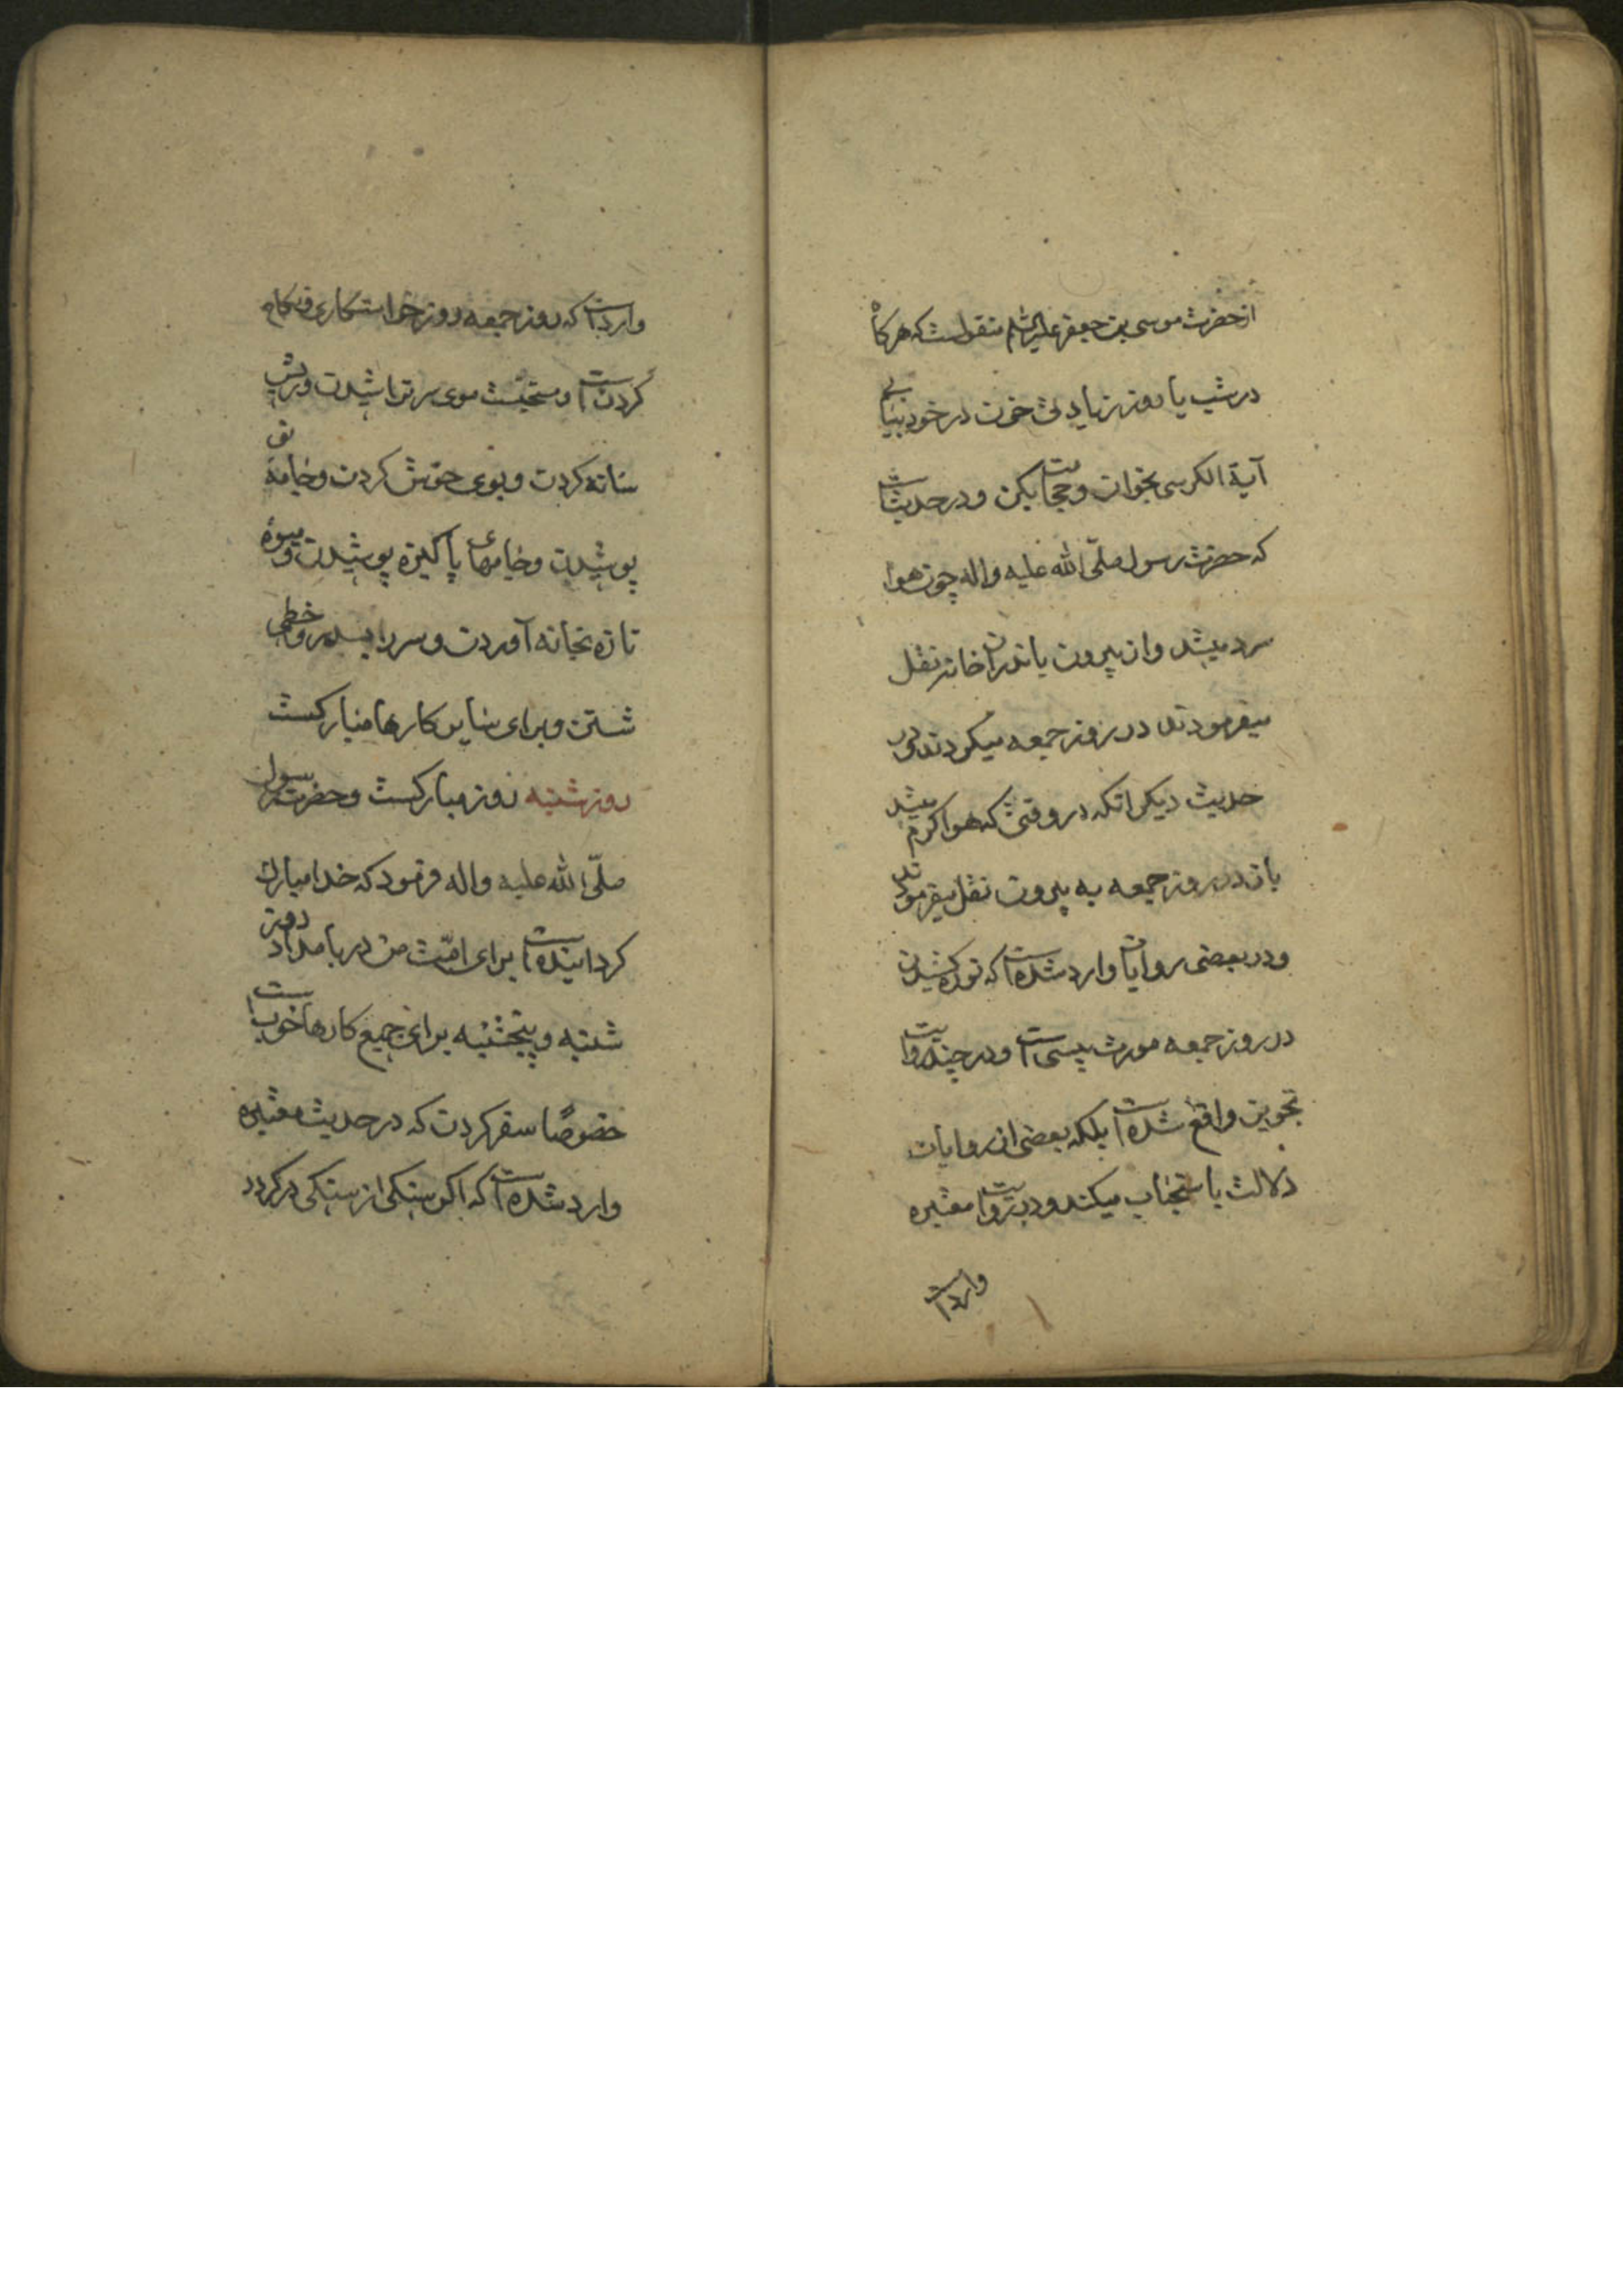 از حضرت موسی بن جعفر علیه السلام منقولست که هرکاه
در شب یا روز زیادتی خون در خود بیابی
آیة الکرسی بخوان و حجامت بکن و در حدیثست
که حضرت رسول صلّی الله علیه واله چون هوا
سرد میشد و از بیرون باندران خانه نقل
میفرمودند در روز جمعه میکردند و در
حدیث دیکر انکه در وقتی که هوا کرم میشد
باز در روز جمعه به بیرون نقل میفرمودند
و در بعضی روایات وارد شده است که نوره کشیدن
در روز جمعه مورث پیسی است و در چند روایت
تجویز واقع شده است بلکه بعضی از روایات
دلالت باستحباب میکند و در روایت معتبره
وارد است
وارد است که روز جمعه روز خواستکاری و نکاح
کردن است و مستحبست موی سر تراشیدن و ریش
شانه کردن و بوی خوش کردن و جامه نو
پوشیدن و جامهای پاکیزه پوشیدن و میوهٔ
تازه بخانه آوردن و سر را بسدر و خطمی
شستن و برای سایر کارها مبارکست
روز شنبه روز مبارکست و حضرت رسول
صلّی الله علیه واله فرمود که خدا مبارک
کردانیده است برای امّت من در بامداد روز
شنبه و پنجشنبه برای جمیع کارها خوب است
خصوصًا سفر کردن که در حدیث معتبره
وارد شده است که اکر سنکی از سنکی در کردد